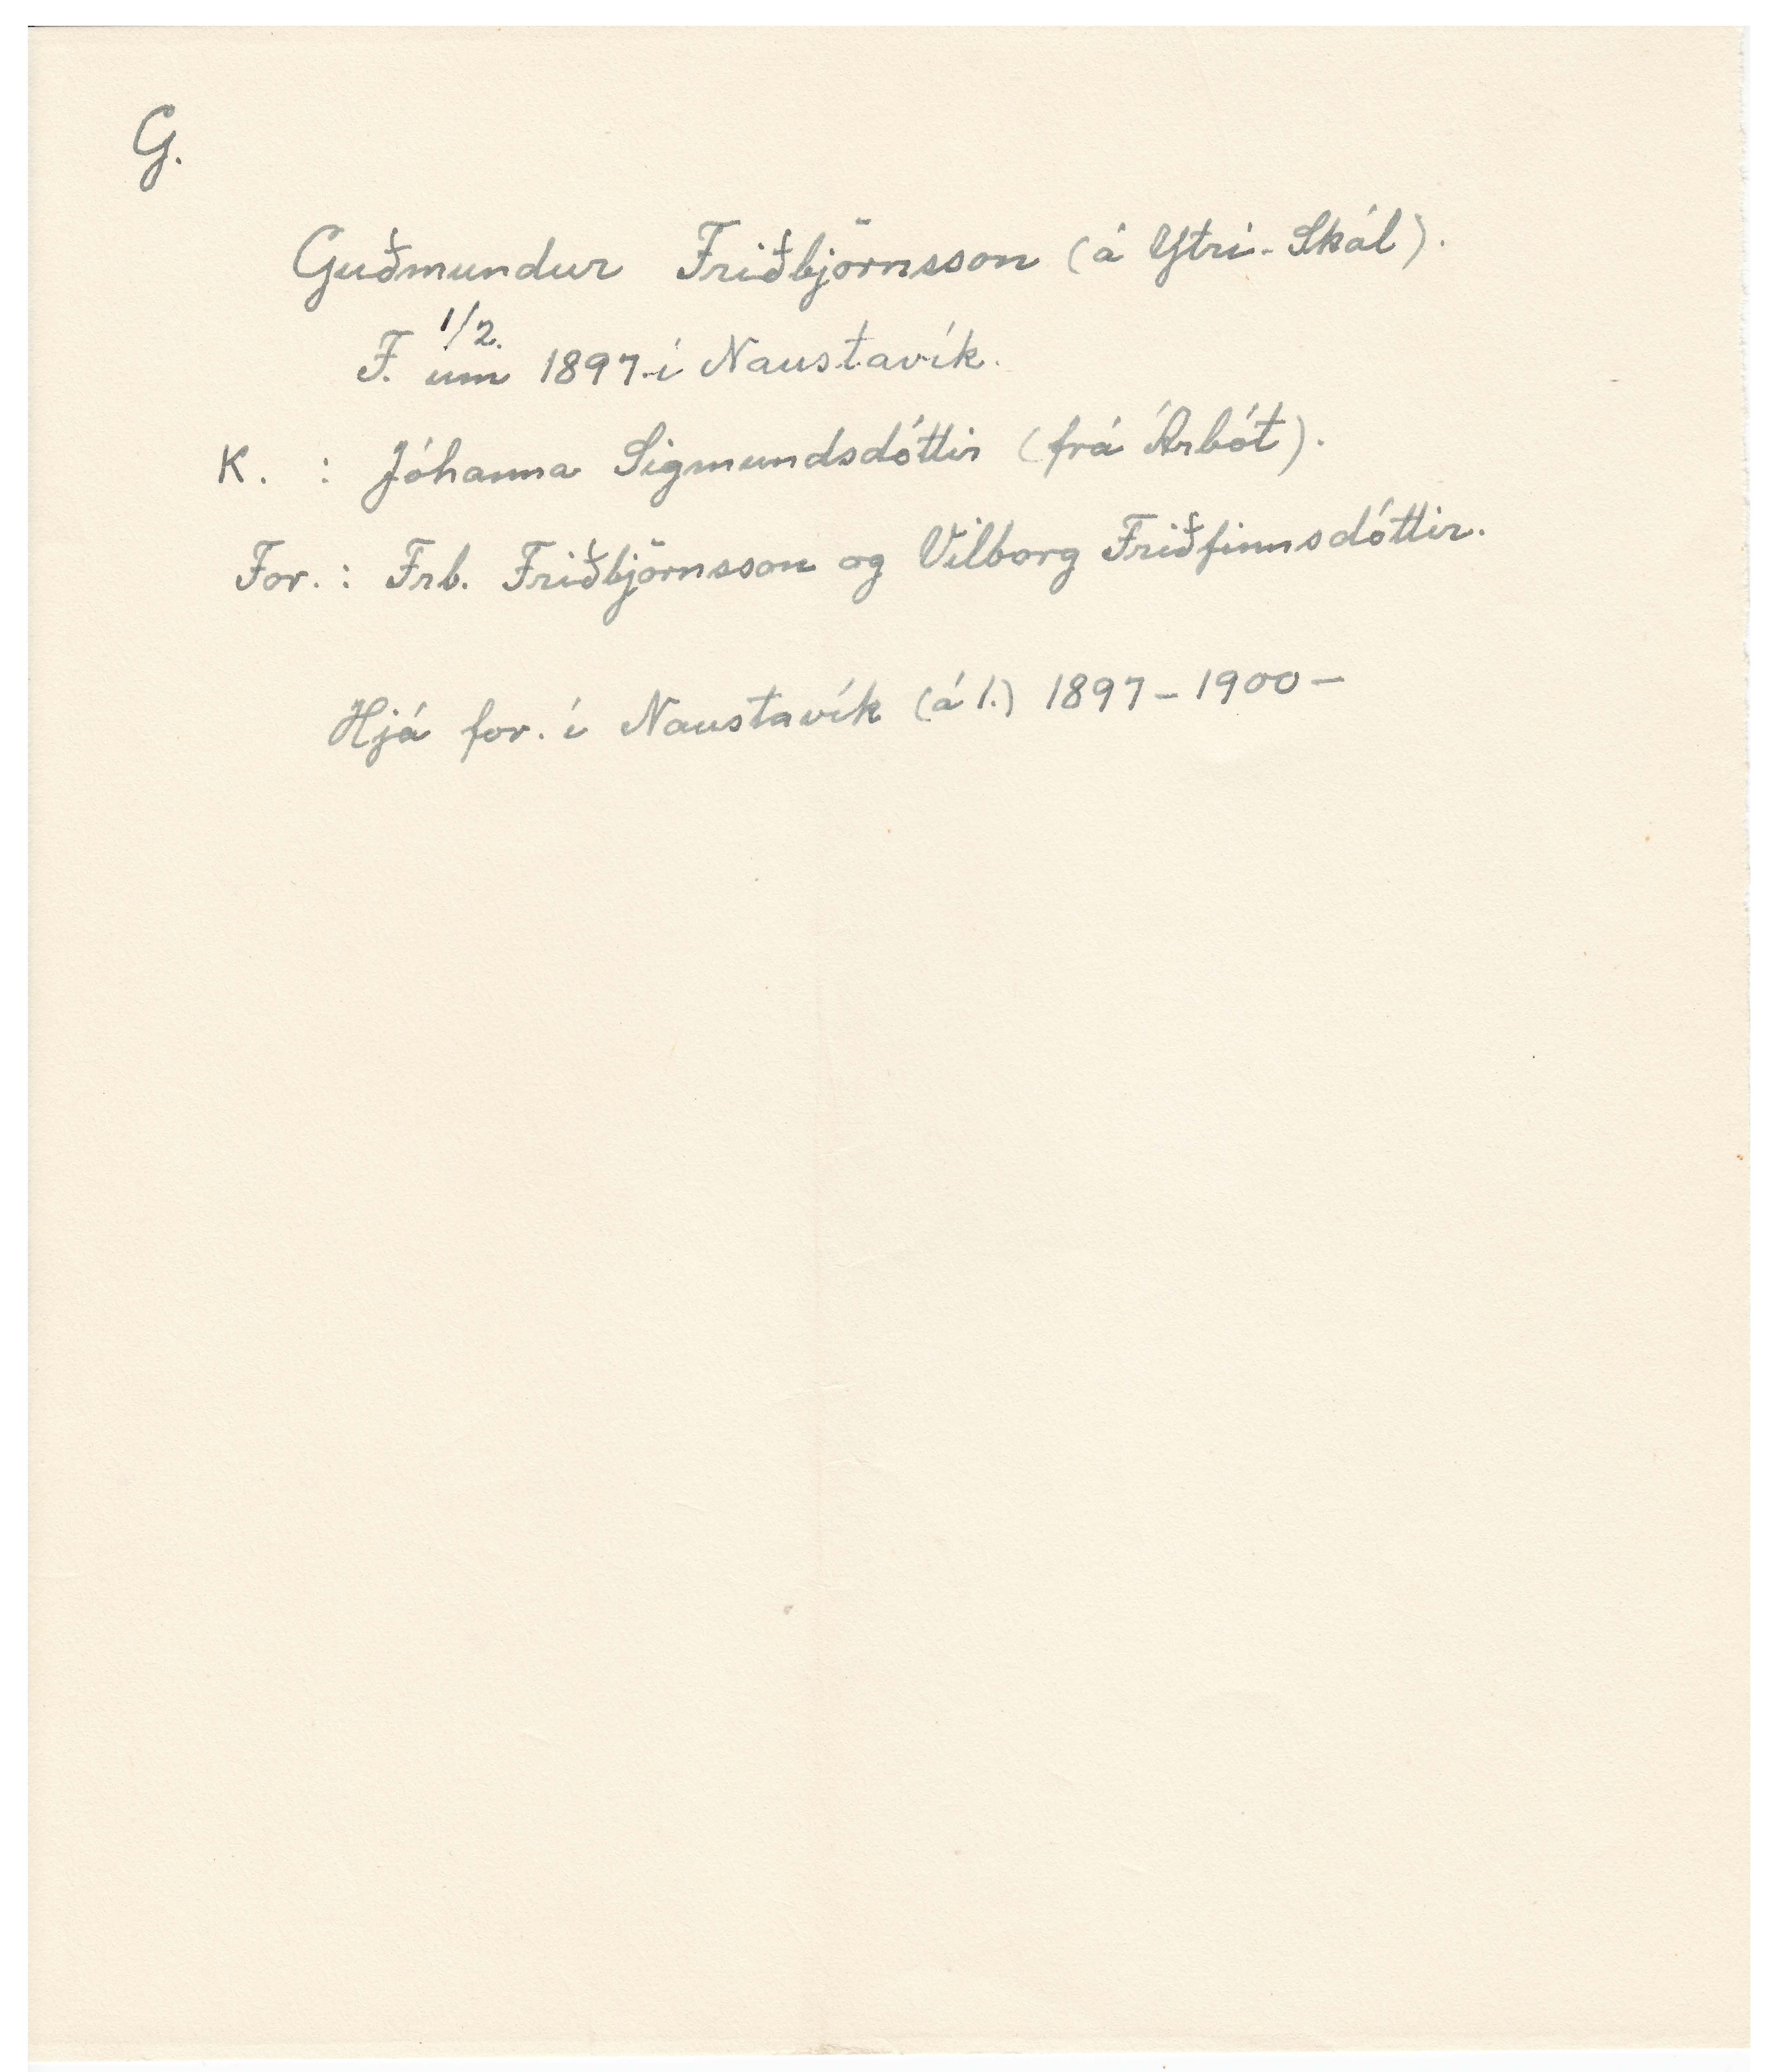 G.
Guðmundur Friðbjörnsson (á Ytri-Skál).
1/2.
F. um 1897 í Naustavík.
K. : Jóhanna Sigmundsdóttir (frá Árbót).
For. : Frb. Friðbjörnsson og Vilborg Friðfinnsdóttir.
Hjá for. í Naustavík (á 1.) 1897 - 1900 -